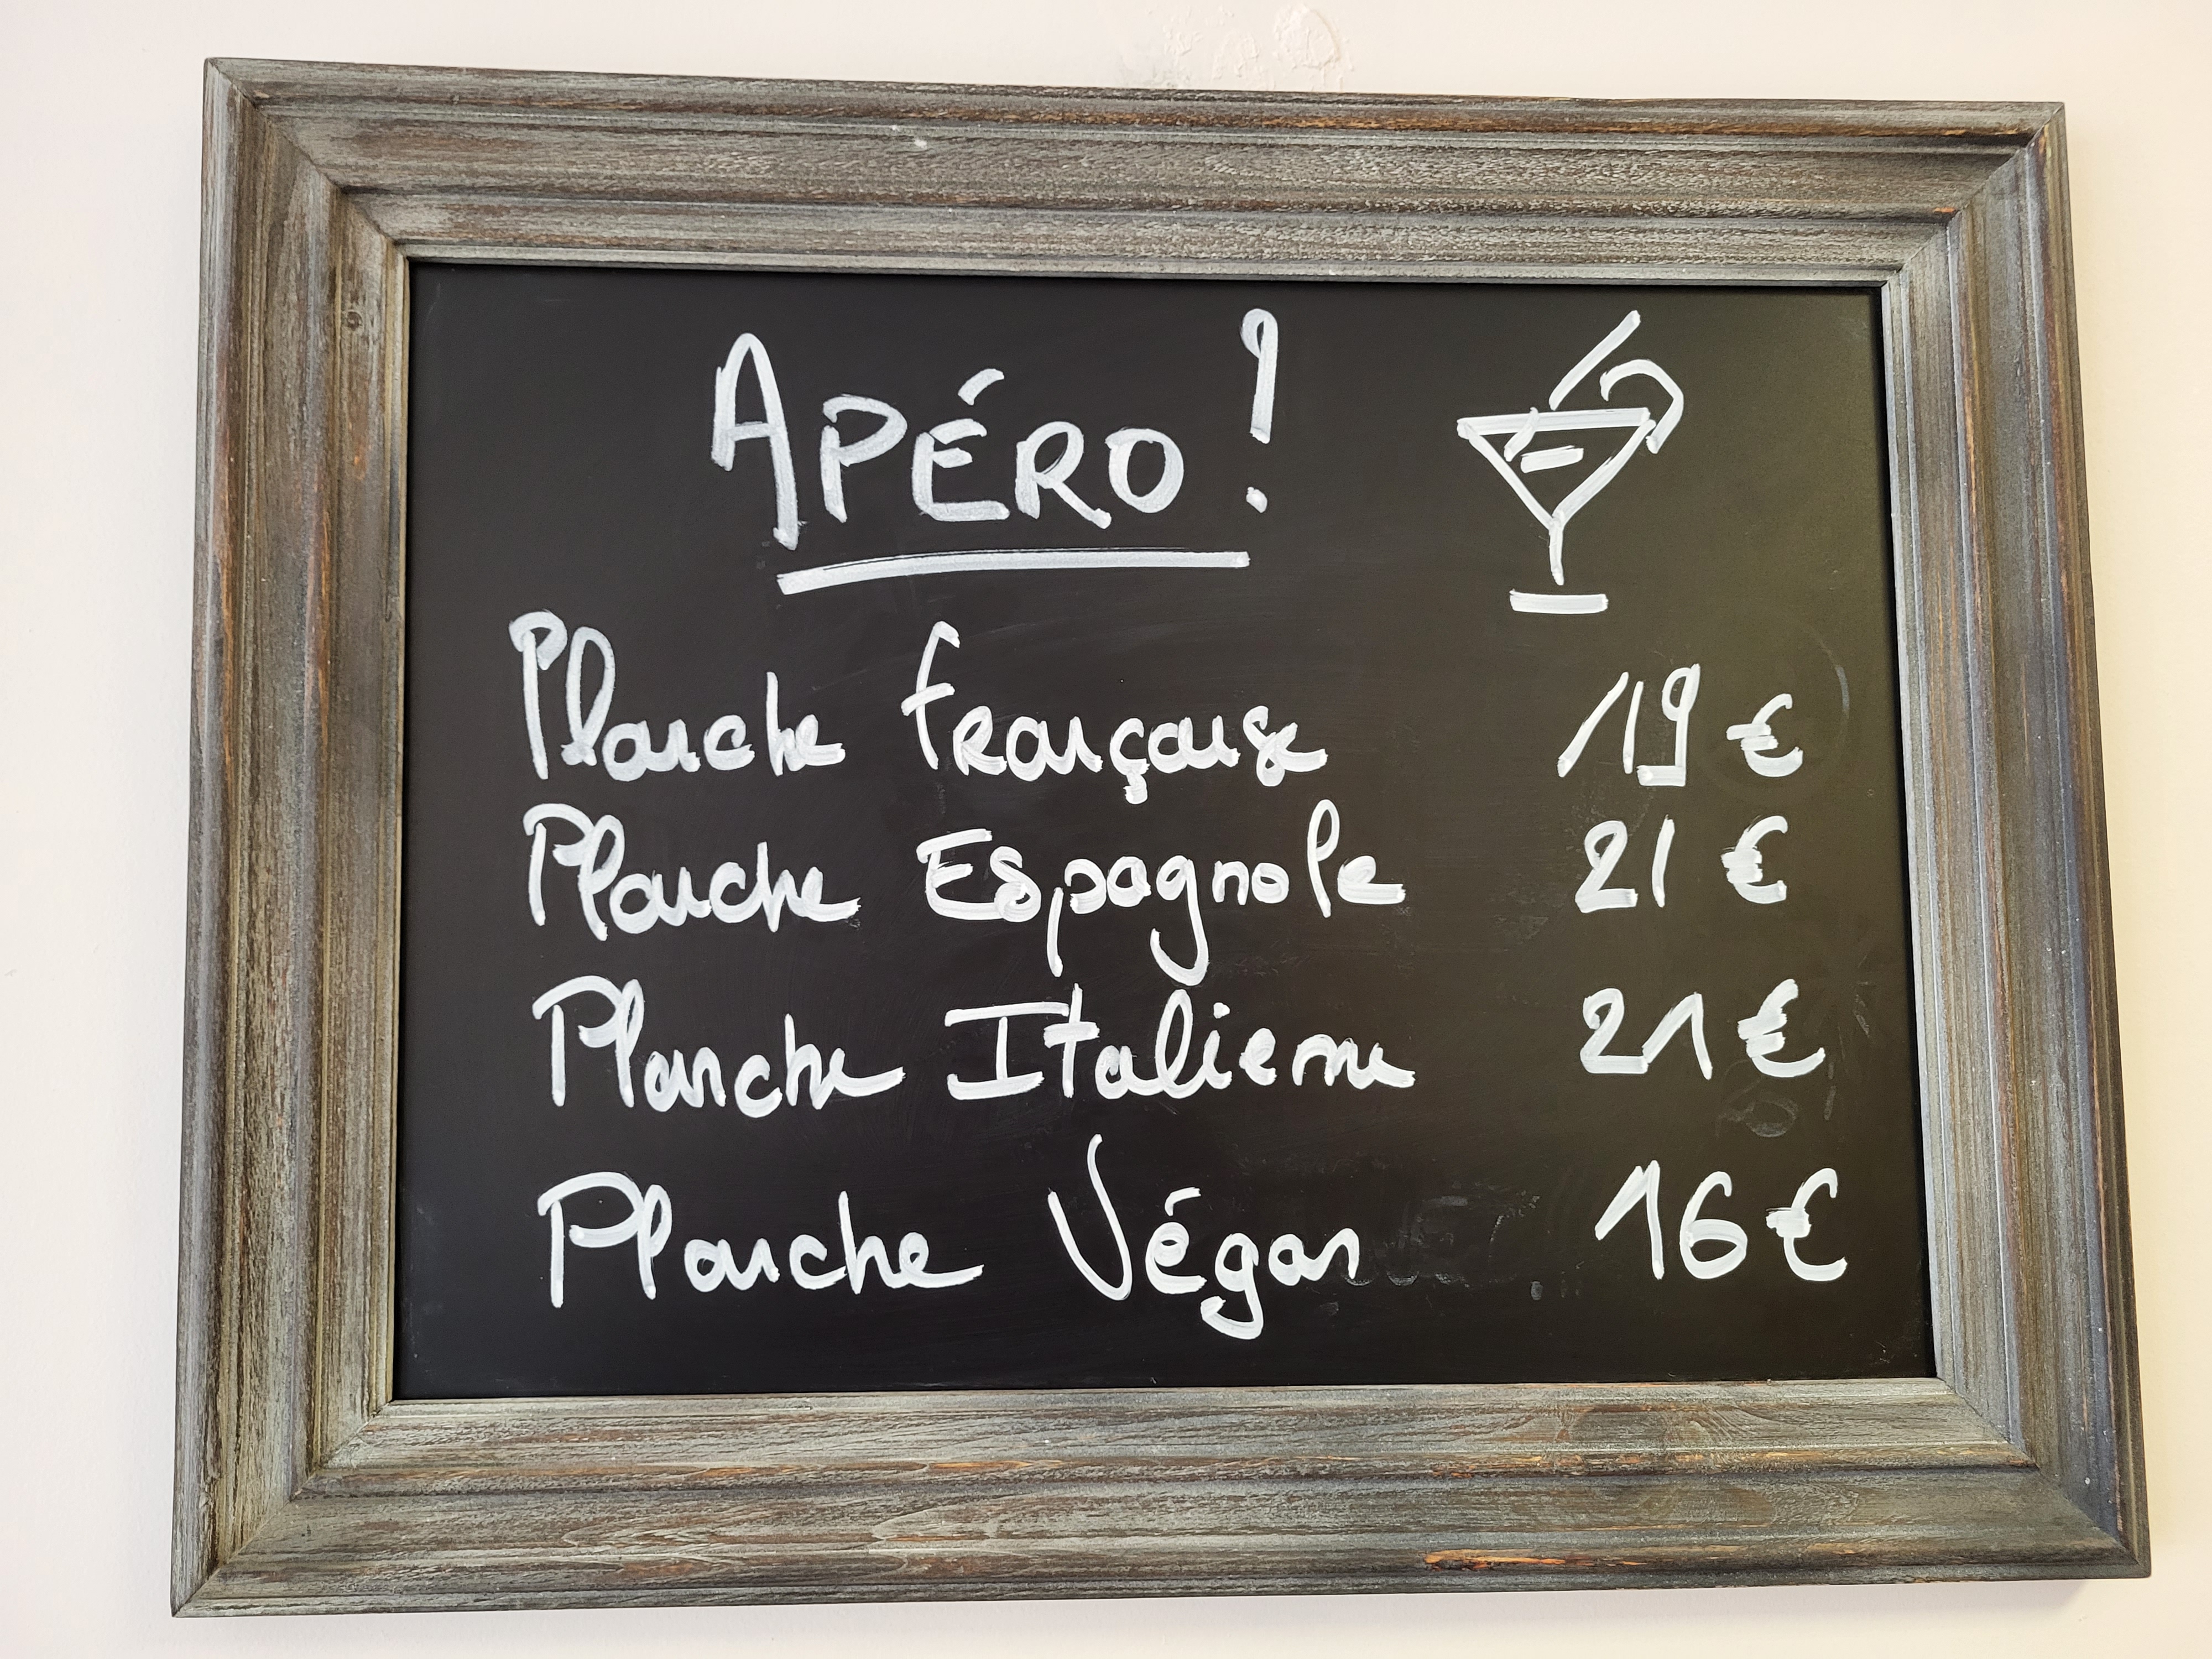 APÉRO !
Planche française 19 €
Planche Espagnole 21 €
Planche Italienne 21 €
Planche Végan 16 €